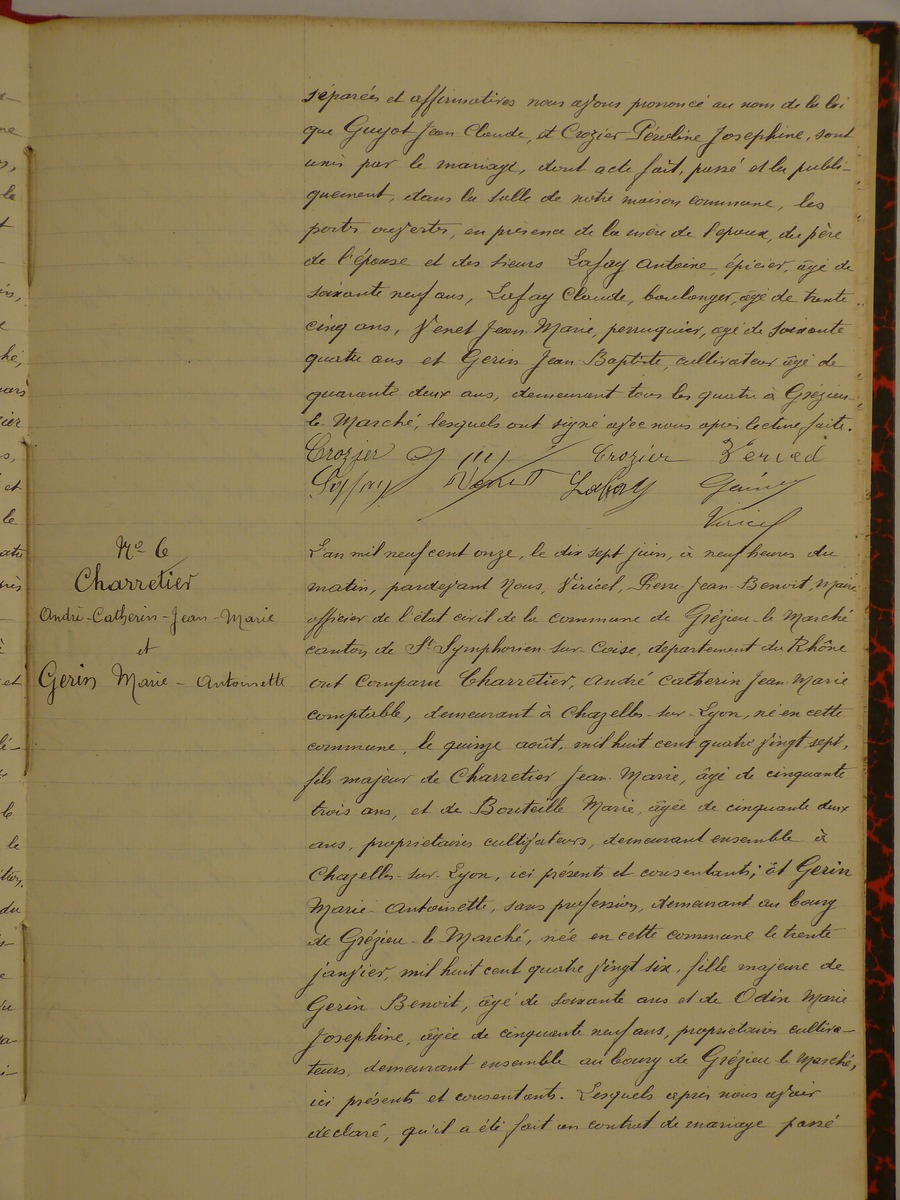 séparées et affirmatives nous avons prononcé au nom de la loi
que Guyot Jean Claude, et Crozier Péroline Josephine, sont
unis par le mariage, dont acte fait, passé et lu publi-
quement, dans la salle de notre maison commune, les
portes ouvertes, en présence de la mère de l'époux, du père
de l'épouse et des sieurs Lafay Antoine, épicier, âgé de
soixante neuf ans, Lafay Claude, boulanger, âgé de trente
cinq ans, Venet Jean Marie, perruquier, âgé de soixante
quatre ans et Gerin Jean Baptiste, cultivateur âgé de
quarante deux ans, demeurant tous les quatre à Grézieu-
le Marché, lesquels ont signé avec nous après lecture faite.
Crozier Crozier
Venet Lafay Gerin
Viricel
No 6
Charretier
André-Catherin-Jean-Marie
et
Gerin Marie-Antoinette
L'an mil neuf cent onze, le dix sept juin, à neuf heures du
matin, pardevant Nous, Viricel, Pierre Jean-Benoit, Maire
officier de l'état civil de la commune de Grézieu-le Marché
canton de St Symphorien-sur-Coise, département du Rhône
ont comparu Charretier, André Catherin Jean-Marie
comptable, demeurant à Chazelles-sur-Lyon, né en cette
commune, le quinze août, mil huit cent quatre vingt sept,
fils majeur de Charretier Jean-Marie, âgé de cinquante
trois ans, et de Bouteille Marie, âgée de cinquante deux
ans, propriétaires cultivateurs, demeurant ensemble à
Chazelles-sur-Lyon, ici présents et consentants; Et Gerin
Marie-Antoinette, sans profession, demeurant au bourg
de Grézieu-le Marché, née en cette commune le trente
janvier, mil huit cent quatre vingt six, fille majeure de
Gerin Benoit, âgé de soixante ans et de Odin Marie
Josephine, âgée de cinquante neuf ans, propriétaires cultiva-
teurs, demeurant ensemble au bourg de Grézieu-le Marché,
ici présents et consentants. Lesquels après nous avoir
declaré, qu'il a été fait un contrat de mariage passé